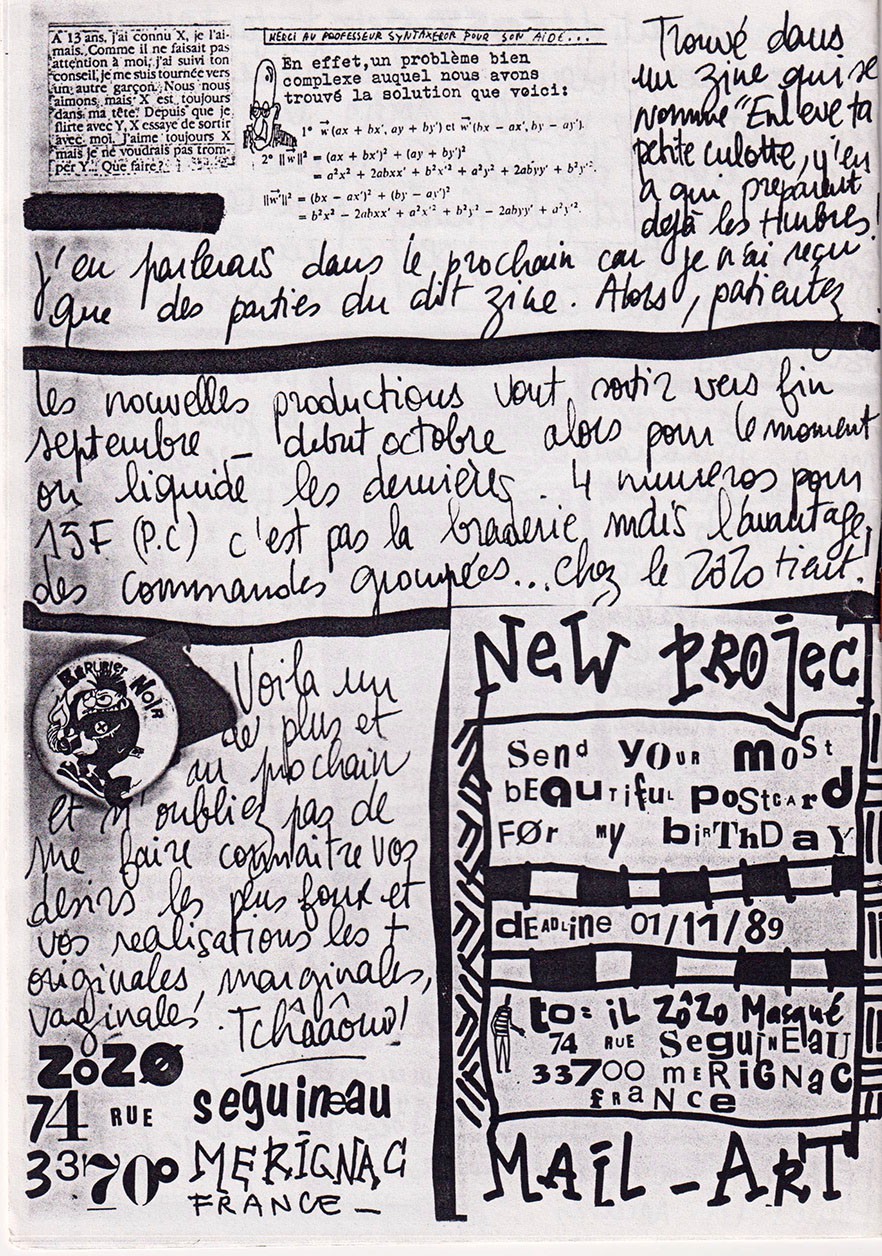 A 13 ans, j'ai connu X, je l'ai-
mais. Comme il ne faisait pas
attention à moi, j'ai suivi ton
conseil, je me suis tournée vers
un autre garçon. Nous nous
aimons, mais X est toujours
dans ma tête. Depuis que je
flirte avec Y, X essaye de sortir
avec moi. J'aime toujours X
mais je ne voudrais pas trom-
per Y... Que faire?
MERCI AU PROFESSEUR SYNTAXEROR POUR SON AIDE...
En effet,un problème bien
complexe auquel nous avons
trouvé la solution que voici:
1° w⃗(ax + bx', ay + by') et w⃗'(bx − ax', by − ay').
2° ||w⃗||² = (ax + bx')² + (ay + by')²
= a²x² + 2abxx' + b²x'² + a²y² + 2abyy' + b²y'².
||w⃗'||² = (bx − ax')² + (by − ay')²
= b²x² − 2abxx' + a²x'² + b²y² − 2abyy' + a²y'².
Trouvé dans
un zine qui se
nomme "Enleve ta
petite culotte, y'en
a qui preparent
dejà les timbres!
j'en parlerais dans le prochain car je n'ai reçu
que des parties du dit zine. Alors, patientez
Les nouvelles productions vont sortir vers fin
septembre _ debut octobre alors pour le moment
on liquide les dernières. 4 numeros pour
15F (P.C) c'est pas la braderie mais l'avantage
des commandes groupées... chez le ZoZo tient!
BERURIER NOIR
Voila un
de plus et
au prochain
et n'oubliez pas de
me faire connaitre vos
desirs les plus foux et
vos realisations les +
originales, marginales,
vaginales. Tchâaâouw!
ZoZØ
74 RUE seguineau
33700 MERIGNAC
FRANCE _
NEW PROJECT
Send YOUR MOST
bEAUTiFUL POSTCARD
FØr MY biRThDaY
dEADLine 01/11/89
to: iL ZôZo Masqué
74 RUE SeguiNEaU
33700 MERiGNaC
fRaNce
MAiL-ART